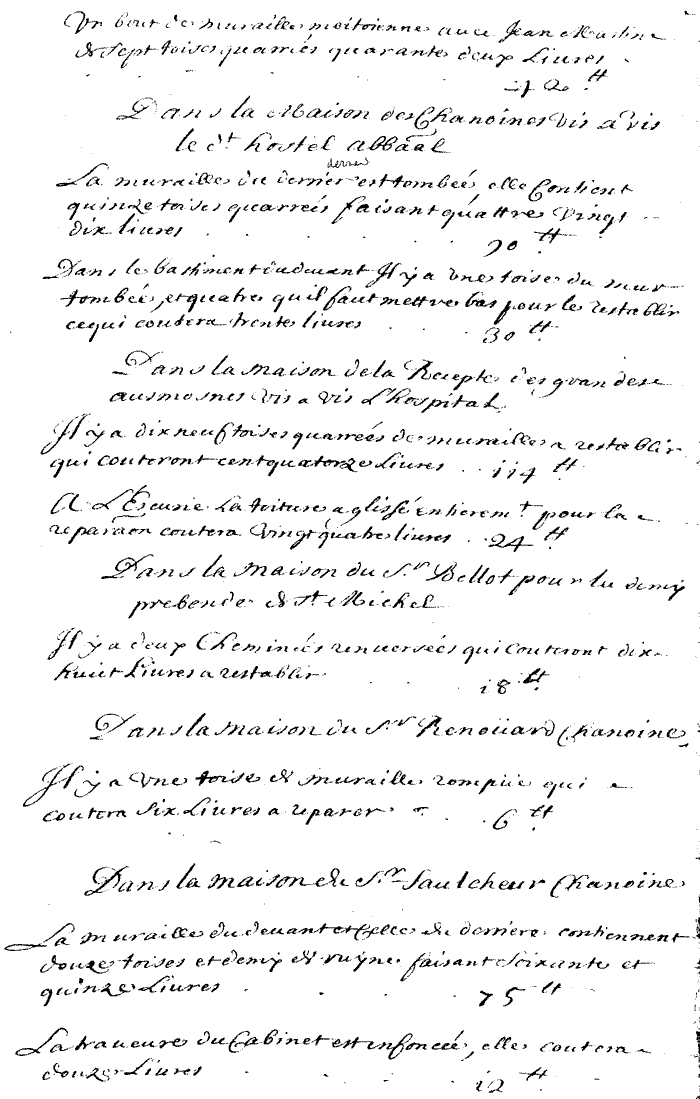 Un bout de muraille meitoienne avec Jean Martin
de sept toises quarriés quarante deux Livres
42 ₶
Dans la Maison des Chanoines vis a vis
le dt hostel abbaãl
derrier
La muraille du derrier est tombeé, elle Contient
quinze toises quarreés faisant quattre Vingt
dix livres 90 ₶
Dans le bastiment du devant Il y a une toise du mur
tombeé, et quatre qu'il faut mettre bas pour le restablir
ce qui coutera trente livres 30 ₶
Dans la maison de la Recepte des grandes
aumosnes vis a vis L'hospital
Il y a dix neuf toises quarreés de muraille a restablir
qui couteront cent quatorze Livres 114 ₶
A L'Escurie La toiture a glissé entierem.t pour la
reparãon coutera Vingt quatre livres 24 ₶
Dans la maison du S.r Bellot pour la demy
prebende de S.t Michel
Il y a deux Cheminéés renversées qui couteront dix
huict Livres a restablir 18 ₶
Dans la maison du S.r Renoüard Chanoine
Il y a une toise de muraille rompüe qui
coutera six Livres a reparer 6 ₶
Dans la maison du S.r Saulcheur Chanoine
La muraille du devant et Celle du derriere contiennent
douze toises et demy de ruyne faisant soixante et
quinze Livres 75 ₶
La traveure du Cabinet est enfonceé, elle coutera
douze Livres 12 ₶